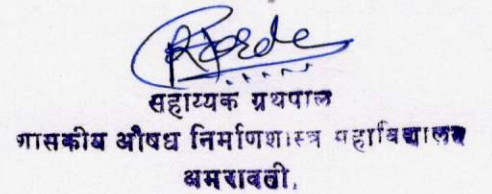 सहाय्यक ग्रथपाल
शासकीय औषध निर्माणशास्त्र महाविद्यालय
अमरावती.